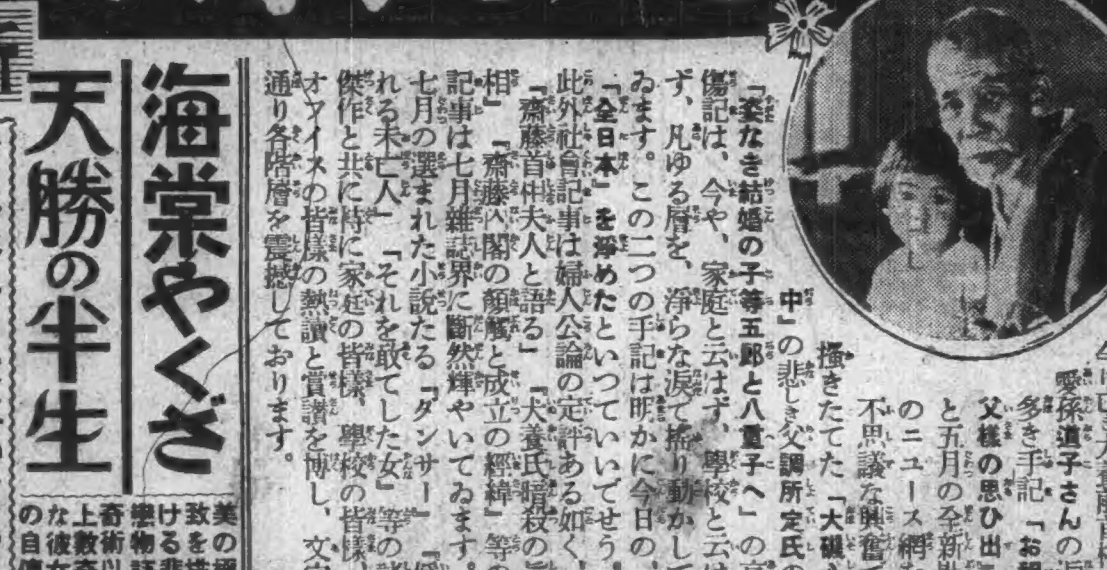 愛孫道子さんの
多き手記「お祖
父様の思ひ出」
と五月の全新
のニュース網
不思議な興奮
搔きたてた「大磯
中」の悲しき父調所定氏の
「姿なき結婚の子等五郎と八重子へ」の
傷記は、今や、家庭と云はず、學校と云は
ず、凡ゆる層を、淨らな淚で搖り動かして
ゐます。この二つの手記は明かに今日の
「全日本」を淨めたといつていいでせう。
此外社會記事は婦人公論の定評ある如く、
「齋藤首相夫人と語る」「犬養氏暗殺の
相」「齋藤内閣の顔觸と成立の經緯」等の
記事は七月雜誌界に斷然輝やいてゐます。
七月の選まれた小說たる「ダンサー」「
れる未亡人」「それを敢てした女」等の
傑作と共に特に家庭の皆樣、學校の皆樣、
オフイスの皆樣の熱讀と賞讚を博し、文
通り各階層を震撼しております。
海棠やくざ
天勝の半生
美の
致を
ける悲
戀物
奇術以
上數奇
な彼女
の自